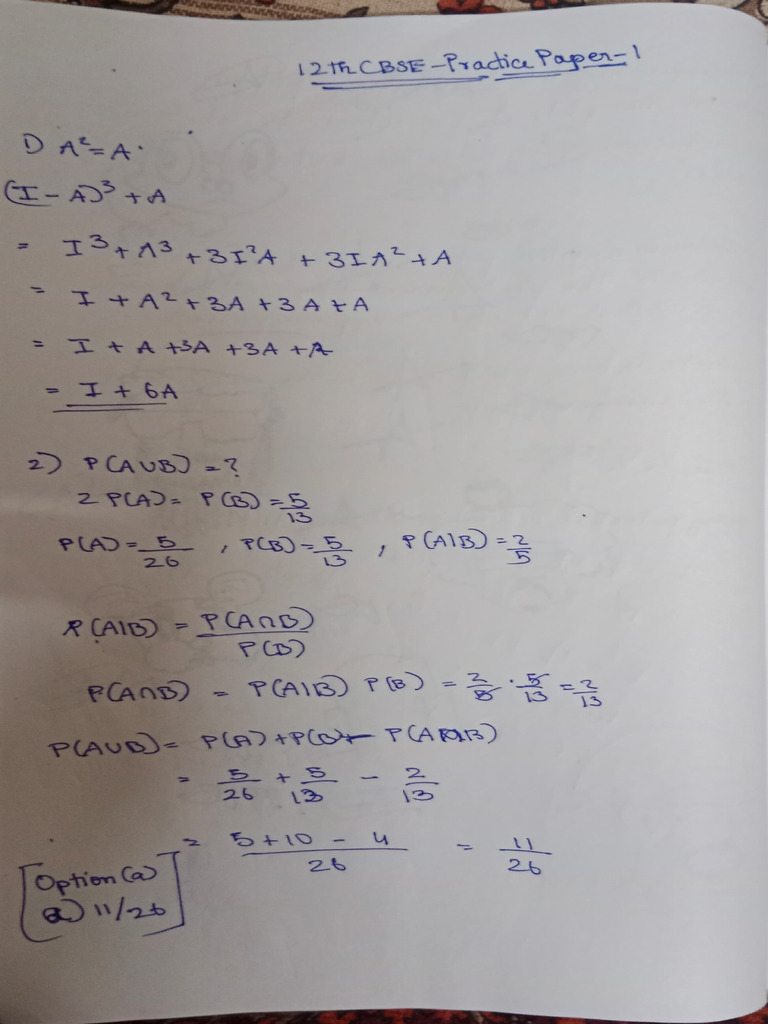 12th CBSE - Practice Paper - 1
1) A² = A.
(I - A)³ + A
= I³ + A³ + 3I²A + 3IA² + A
= I + A² + 3A + 3A + A
= I + A + 3A + 3A + A
= I + 6A
2) P(A∪B) = ?
2 P(A) = P(B) = 5/13
P(A) = 5/26 , P(B) = 5/13 , P(A|B) = 2/5
P(A|B) = P(A∩B)/P(B)
P(A∩B) = P(A|B) P(B) = 2/5 · 5/13 = 2/13
P(A∪B) = P(A) + P(B) - P(A∩B)
= 5/26 + 5/13 - 2/13
= (5+10-4)/26 = 11/26
Option (a)
a) 11/26